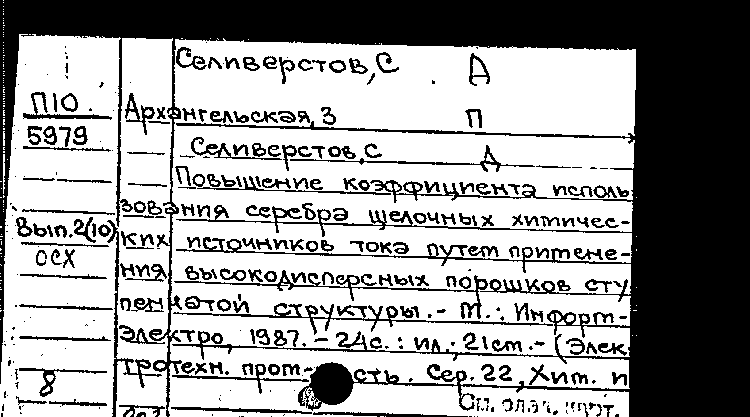 Селиверстов, С. Д
П10.
Архангельская, З П
5979
Селиверстов, С Д
Повышение коэффициента исполь
зования серебра щелочных химичес-
Вып.2(10)
ких источников тока путем примене-
ОСХ
ния высокодисперсных порошков сту
пенчатой структуры. - М.: Информ-
электро, 1987. - 24с. : ил.; 21см. - (Элек
тротехн. пром- сть. Сер. 22, Хим. и
8
См. след. карт.